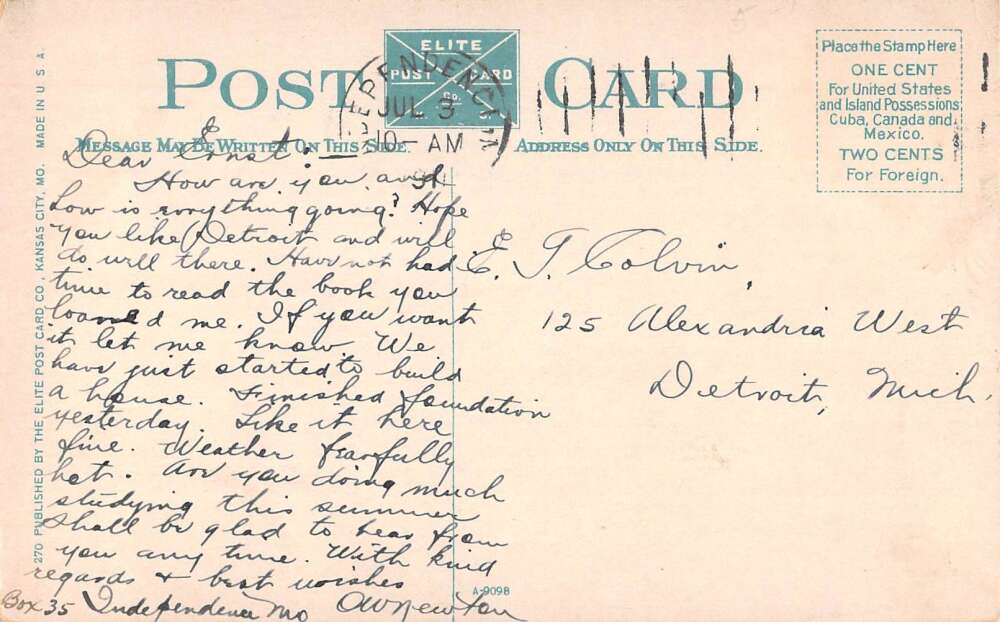 POST CARD
ELITE
POST CARD
Co.
INDEPENDENCE
JUL 3
10 – AM
MESSAGE MAY BE WRITTEN ON THIS SIDE.
ADDRESS ONLY ON THIS SIDE.
Place the Stamp Here
ONE CENT
For United States
and Island Possessions,
Cuba, Canada and
Mexico.
TWO CENTS
For Foreign.
Dear Ernst:
How are you and
how is everything going? Hope
you like Detroit and will
do well there. Have not had
time to read the book you
loaned me. If you want
it let me know. We
have just started to build
a house. Finished foundation
yesterday. Like it here
fine. Weather fearfully
hot. Are you doing much
studying this summer
Shall be glad to hear from
you any time. With kind
regards & best wishes
Box 35 Independence Mo OW Newton
E. T. Colvin,
125 Alexandria West
Detroit, Mich.
270 PUBLISHED BY THE ELITE POST CARD CO., KANSAS CITY, MO. MADE IN U S A
A-9098